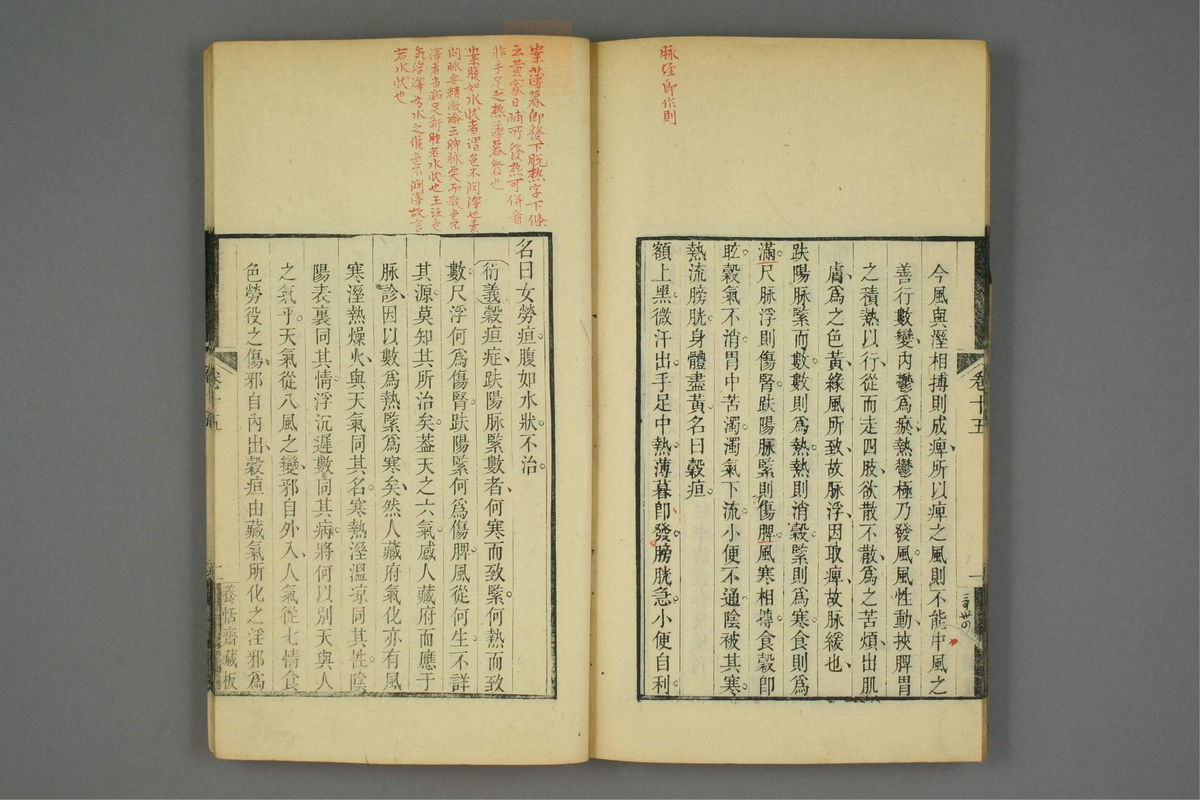 脉經即作則
今風與溼相搏則成痺所以痺之風則不能中風之
善行數變內鬱爲瘀熱鬱極乃發風風性動挾脾胃
之積熱以行從而走四肢欲散不散爲之苦煩出肌
膚爲之色黃緣風所致故脉浮因取痺故脉緩也
趺陽脉緊而數數則爲熱熱則消穀緊則爲寒食則爲
滿尺脉浮則傷腎趺陽脉緊則傷脾風寒相摶食穀即
眩穀氣不消胃中苦濁濁氣下流小便不通陰被其寒
熱流膀胱身體盡黃名曰穀疸
額上黑微汗出手足中熱薄暮即發膀胱急小便自利
卷十五
一
案薄暮即發下脫熱字下條
云黃家日晡所發熱可併看
非手足之熱薄暮發也
案腹如水狀者謂色不潤澤也素
問脉要精微論云脾脉耎而散色不
澤者當病足䯒腫若水狀也王注色
氣浮澤爲水之候色不潤澤故言
若水狀也
名曰女勞疸腹如水狀不治
衍義穀疸症趺陽脉緊數者何寒而致緊何熱而致
數尺浮何爲傷腎趺陽緊何爲傷脾風從何生不詳
其源莫知其所治矣蓋天之六氣感人藏府而應于
脉診因以數爲熱緊爲寒矣然人藏府氣化亦有風
寒溼熱燥火與天氣同其名寒熱溼溫凉同其性陰
陽表裏同其情浮沉遲數同其病將何以別天與人
之氣乎天氣從八風之變邪自外入人氣從七情食
色勞役之傷邪自內出穀疸由藏氣所化之淫邪爲
卷十五
二
養恬齋藏板